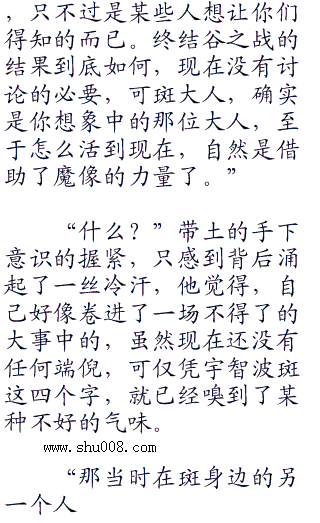 ，只不过是某些人想让你们
得知的而已。终结谷之战的
结果到底如何，现在没有讨
论的必要，可斑大人，确实
是你想象中的那位大人，至
于怎么活到现在，自然是借
助了魔像的力量了。”
“什么？”带土的手下
意识的握紧，只感到背后涌
起了一丝冷汗，他觉得，自
己好像卷进了一场不得了的
大事中的，虽然现在还没有
任何端倪，可仅凭宇智波斑
这四个字，就已经嗅到了某
种不好的气味。
www.shu008.com
“那当时在斑身边的另
一个人